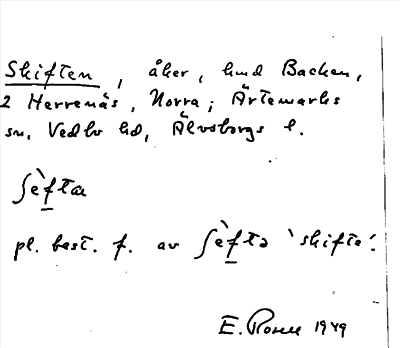 Skiften, åker, hmd Backen,
2 Herrenäs, Norra; Ärtemarks
sn, Vedbo hd, Älvsborgs l.
ʃὲftɑ
pl. best. f. av ʃὲftə 'skifte'.
E. Rosell 1949